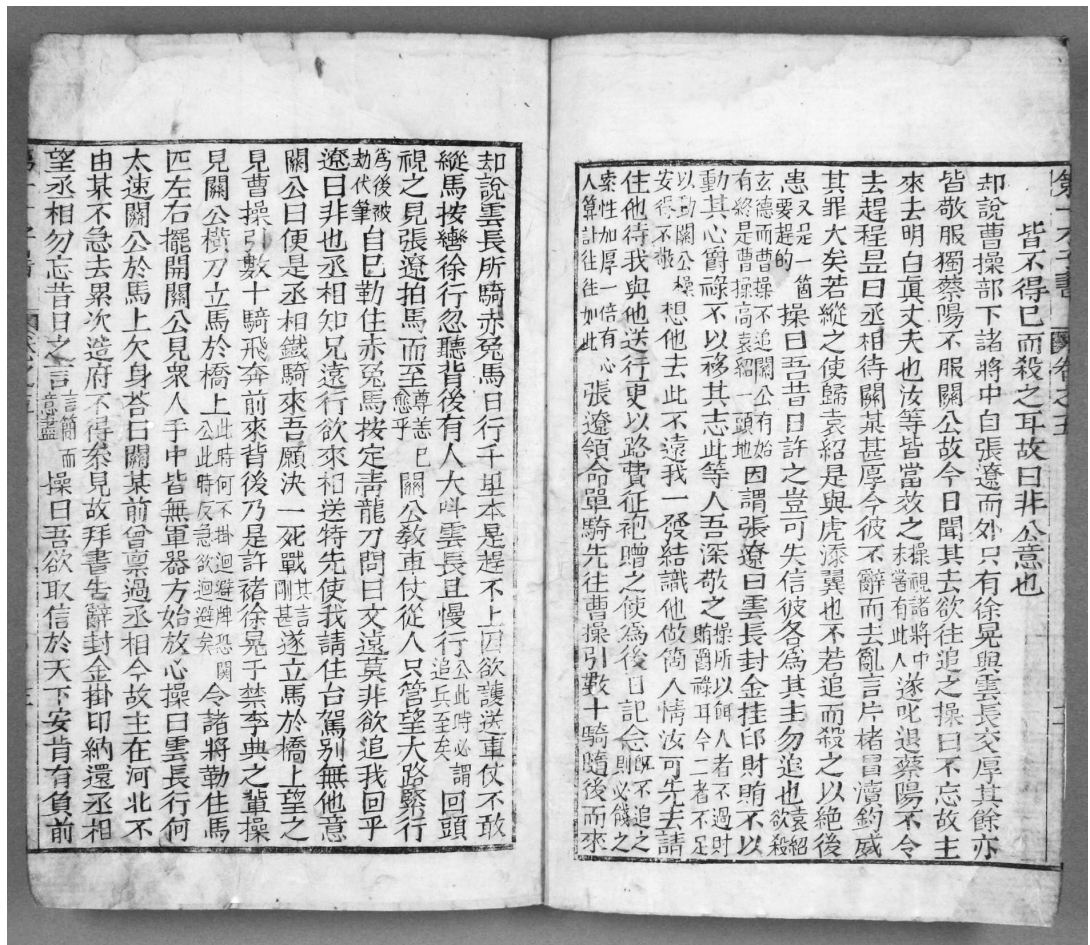 皆不得已而殺之耳故曰非公意也
却說曹操部下諸將中自張遼而外只有徐晃與雲長交厚其餘亦
皆敬服獨蔡陽不服關公故今日聞其去欲往追之操曰不忘故主
來去明白眞丈夫也汝等皆當效之操視諸將中未嘗有此人遂叱退蔡陽不令
去趕程昱曰丞相待關某甚厚今彼不辭而去亂言片楮冒瀆鈞威
其罪大矣若縱之使歸袁紹是與虎添翼也不若追而殺之以絕後
患又是一箇要趕的操曰吾昔日許之豈可失信彼各爲其主勿追也袁紹欲殺
玄德而曹操不追關公有始有終是曹操高袁紹一頭地因謂張遼曰雲長封金挂印財賄不以
動其心爵祿不以移其志此等人吾深敬之操所以餌人者不過財賄爵祿耳今二者不足
以動關公操安得不敬想他去此不遠我一發結識他做箇人情汝可先去請
住他待我與他送行更以路費征袍贈之使爲後日記念旣不追之則必餞之
索性加厚一倍有心人算計往往如此張遼領命單騎先往曹操引數十騎隨後而來
却說雲長所騎赤兔馬日行千里本是趕不上因欲護送車仗不敢
縱馬按轡徐行忽聽背後有人大呌雲長且慢行公此時必謂追兵至矣回頭
視之見張遼拍馬而至尊恙已愈乎關公敎車仗從人只管望大路緊行
爲後被刼伏筆自己勒住赤兔馬按定靑龍刀問曰文遠莫非欲追我回乎
遼曰非也丞相知兄遠行欲來相送特先使我請住台駕別無他意
關公曰便是丞相鐵騎來吾願決一死戰其言剛甚遂立馬於橋上望之
見曹操引數十騎飛奔前來背後乃是許褚徐晃于禁李典之輩操
見關公橫刀立馬於橋上此時何不掛迴避牌恐關公此時反急欲迴避矣令諸將勒住馬
匹左右擺開關公見衆人手中皆無軍器方始放心操曰雲長行何
太速關公於馬上欠身荅曰關某前曾禀過丞相今故主在河北不
由某不急去累次造府不得叅見故拜書告辭封金掛印納還丞相
望丞相勿忘昔日之言言簡而意盡操曰吾欲取信於天下安肯有負前